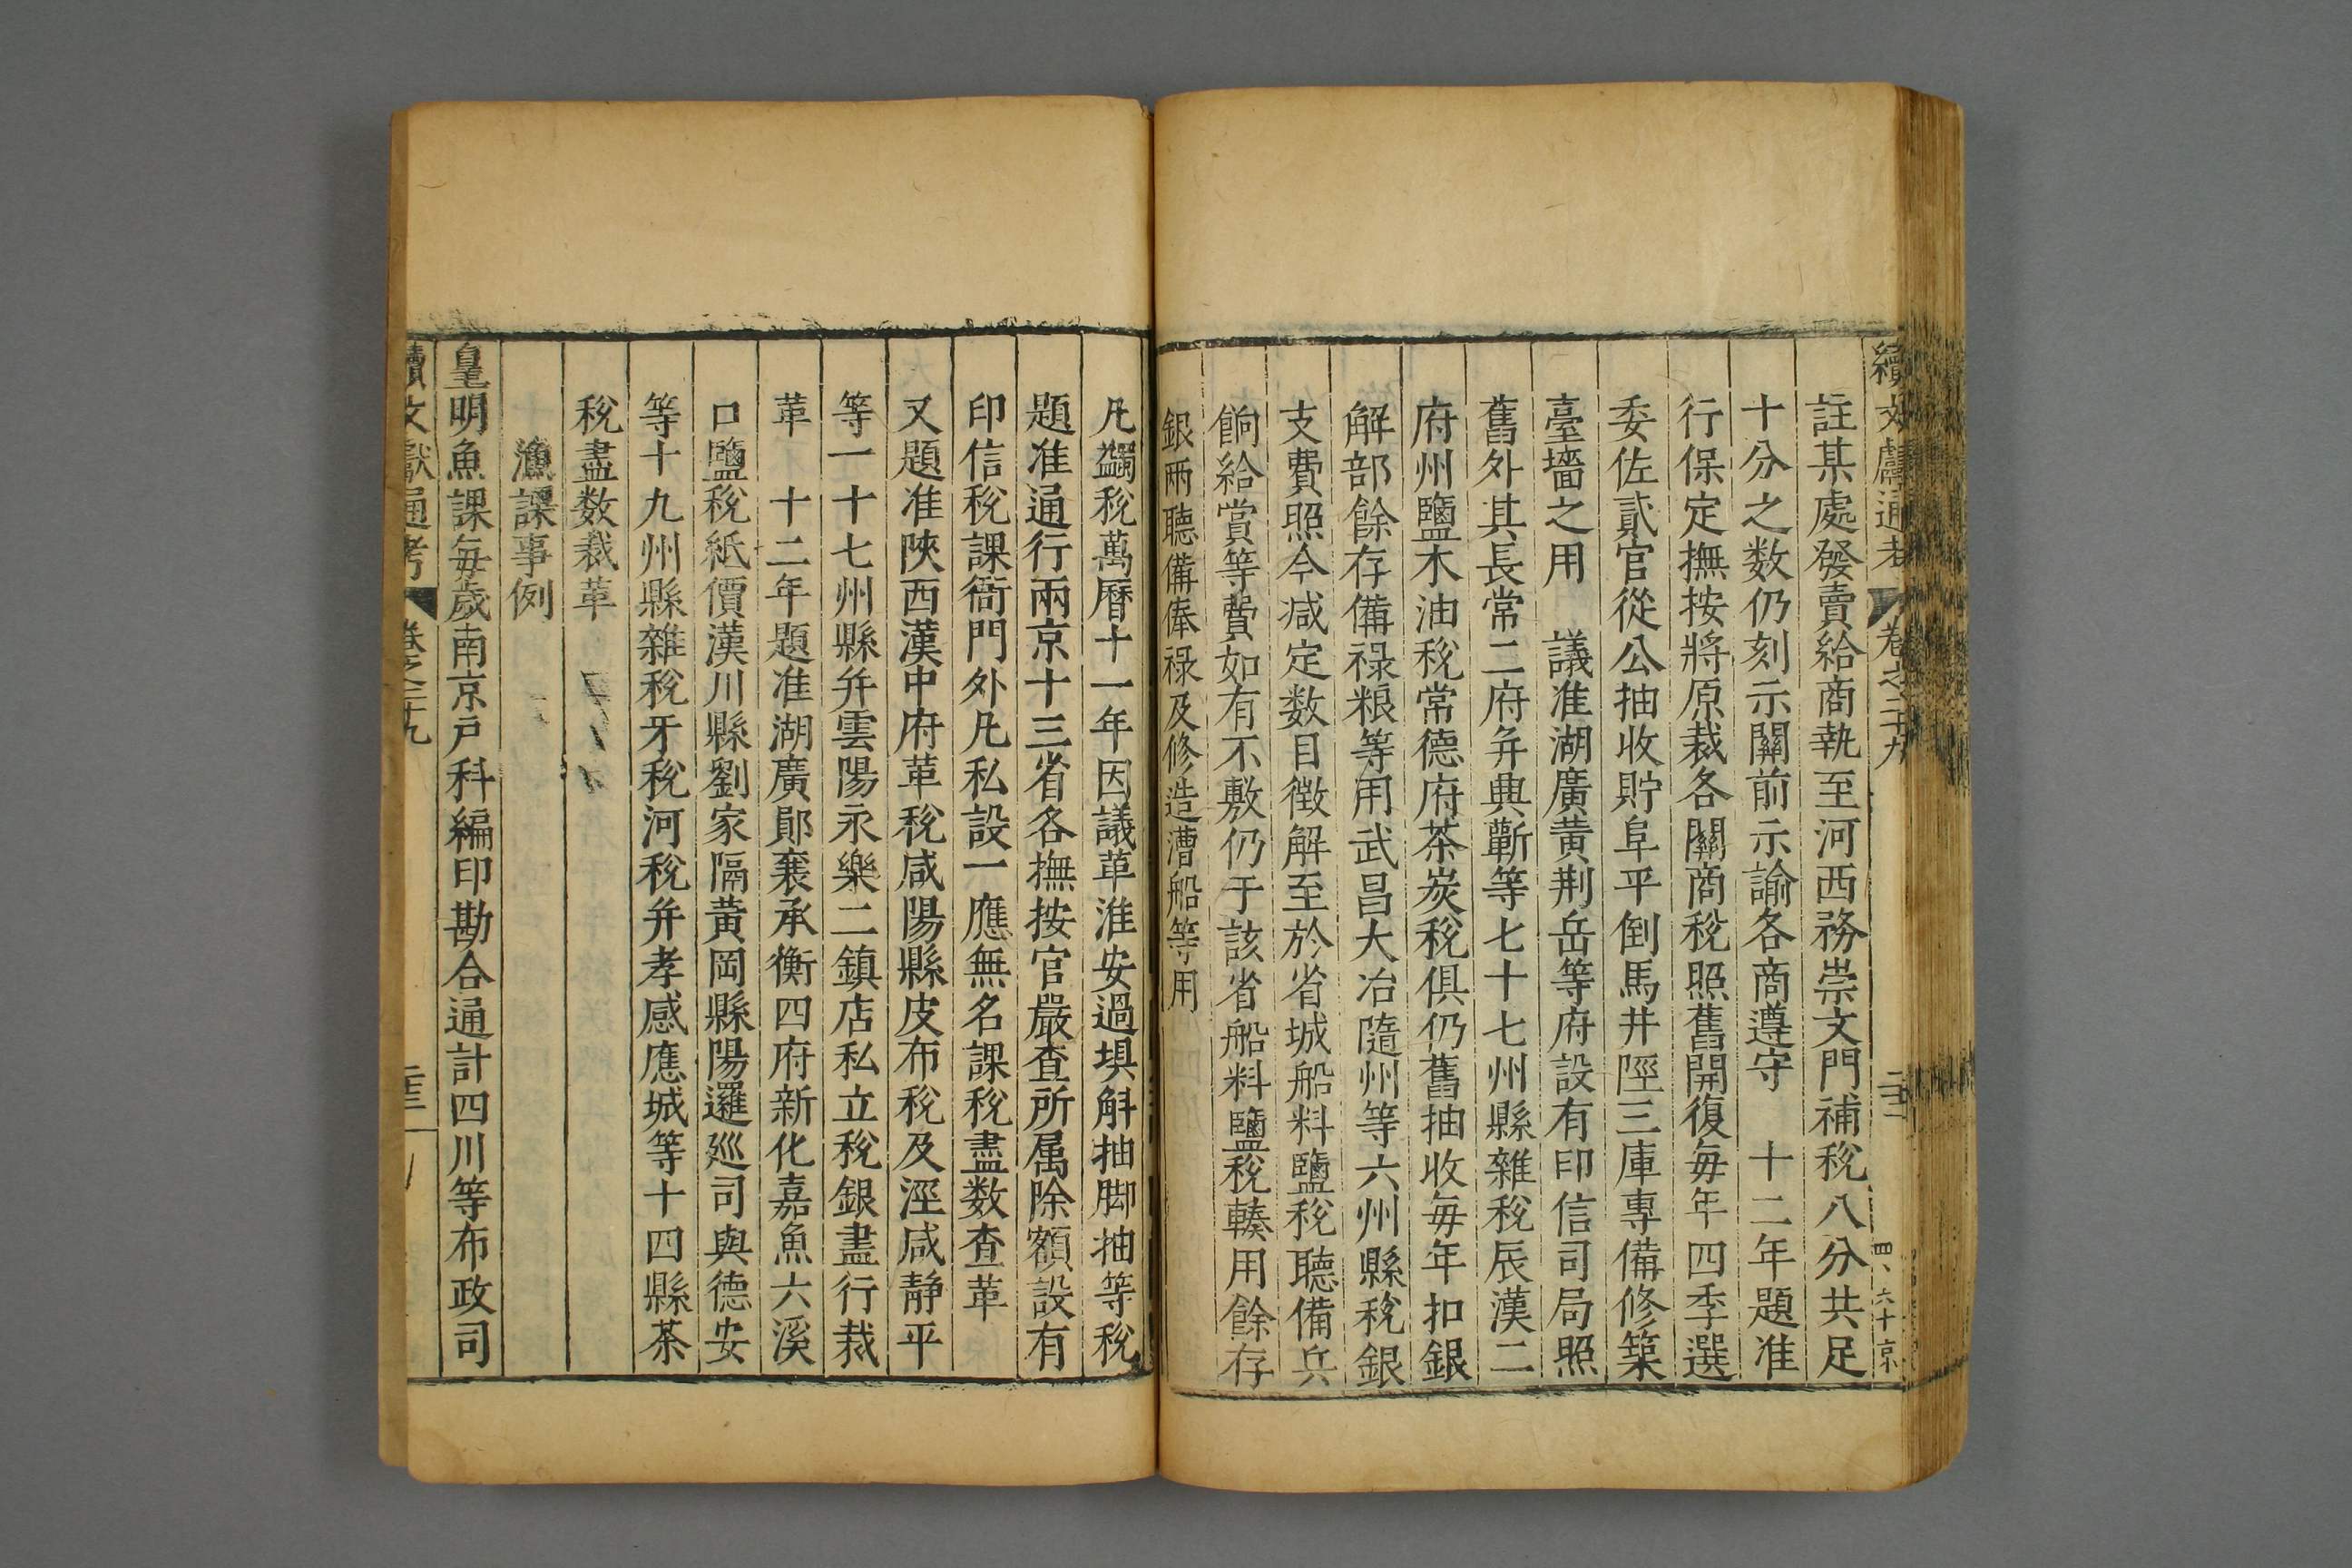 續文獻通考 卷之二十九
註某處發賣給商執至河西務崇文門補稅八分共足
十分之数仍刻示關前示諭各商遵守 十二年題准
行保定撫按將原裁各關商稅照舊開復每年四季選
委佐貳官從公抽收貯阜平倒馬井陘三庫專備修築
臺墻之用 議准湖廣黄荆岳等府設有印信司局照
舊外其長常二府并典蘄等七十七州縣雜稅辰漢二
府州鹽木油稅常德府茶炭稅俱仍舊抽收每年扣銀
解部餘存備禄粮等用武昌大冶隨州等六州縣稅銀
支費照今减定数目徴解至於省城船料鹽稅聽備兵
餉給賞等費如有不敷仍于該省船料鹽稅輳用餘存
銀兩聽備俸禄及修造漕船等用
凡蠲稅萬曆十一年因議革淮安過壩斛抽脚抽等稅
題准通行兩京十三省各撫按官嚴查所属除額設有
印信稅課衙門外凡私設一應無名課稅盡数查革
又題准陜西漢中府革稅咸陽縣皮布稅及涇咸靜平
等一十七州縣并雲陽永樂二鎮店私立稅銀盡行裁
革 十二年題准湖廣鄖襄承衡四府新化嘉魚六溪
口鹽稅紙價漢川縣劉家隔黄岡縣陽邏廵司與德安
等十九州縣雜稅牙稅河稅并孝感應城等十四縣茶
稅盡数裁革
漁課事例
皇明魚課每歲南京戶科編印勘合通計四川等布政司
續文獻通考 卷之二十九